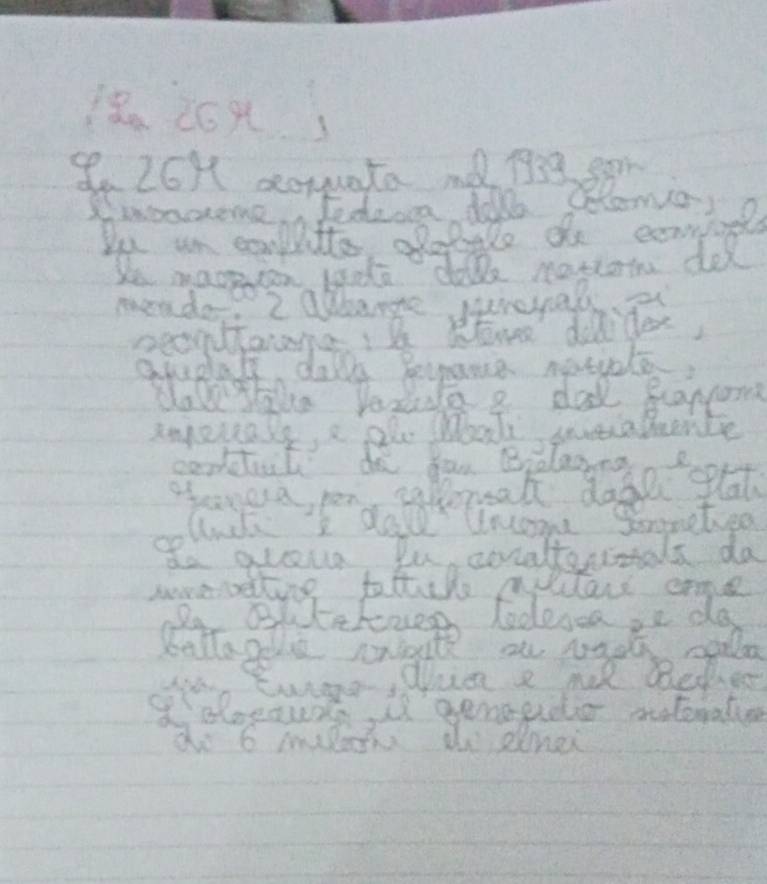 La 2GM
La 2GM scoppiata nel 1939 con
l'invasione tedesca della Polonia,
fu un conflitto globale che coinvolse
la maggior parte delle nazioni del
mondo. 2 alleanze principali si
scontrarono: le potenze dell'Asse,
guidate dalla Germania nazista,
dall'Italia fascista e dal Giappone
imperiale, e gli Alleati, inizialmente
costituiti da Gran Bretagna e
Francia, poi rafforzati dagli Stati
Uniti e dall'Unione Sovietica
La guerra fu caratterizzata da
innovative tattiche militari come
la Blitzkrieg tedesca, e da
battaglie su vasta scala
in Europa, Africa e nel Pacifico
L'olocausto, il genocidio sistematico
di 6 milioni di ebrei